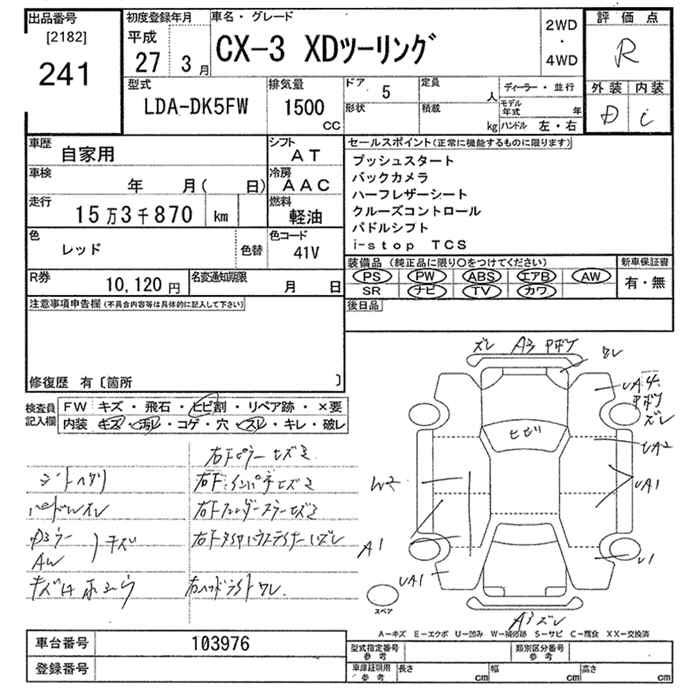 出品番号
[2182]
241
初度登録年月
平成
27 3月
車名・グレード
CX-3 XDツーリング
2WD
・
4WD
評価点
R
外装 内装
D i
型式
LDA-DK5FW
排気量
1500
CC
ドア 5
形状
定員 人
積載 kg
ディーラー・並行
モデル年式 年
ハンドル 左・右
車歴
自家用
シフト
AT
車検
年 月( 日)
冷房
AAC
走行
15万3千870 km
燃料
軽油
色
レッド
色替
色コード
41V
R券
10,120円
名変通知期限
月 日
セールスポイント(正常に機能するものに限ります)
プッシュスタート
バックカメラ
ハーフレザーシート
クルーズコントロール
パドルシフト
i-stop TCS
装備品(純正品に限り○をつけてください)
PS PW ABS エアB AW
SR ナビ TV カワ
新車保証書
有・無
後日品
注意事項申告欄(不具合内容等は具体的に記入して下さい)
修復歴 有〔箇所 〕
検査員記入欄
FW キズ・飛石・ヒビ割・リペア跡・×要
内装 キズ・汚レ・コゲ・穴・スレ・キレ・破レ
右Fピラーヒズミ
右Fインパネヒズミ
右Fフェンダーステーヒズミ
キズ
AW
ズレ A3
ワレ
UA4
ズレ
ヒビ
UA2
UA1
W2
A1
UA1
U1
A3 ズレ
スペア
A-キズ E-エクボ U-凹み W-補修跡 S-サビ C-腐食 XX-交換済
車台番号 103976
登録番号
型式指定番号
参考
類別区分番号
参考
車庫証明用
参考
長さ cm
幅 cm
高さ cm